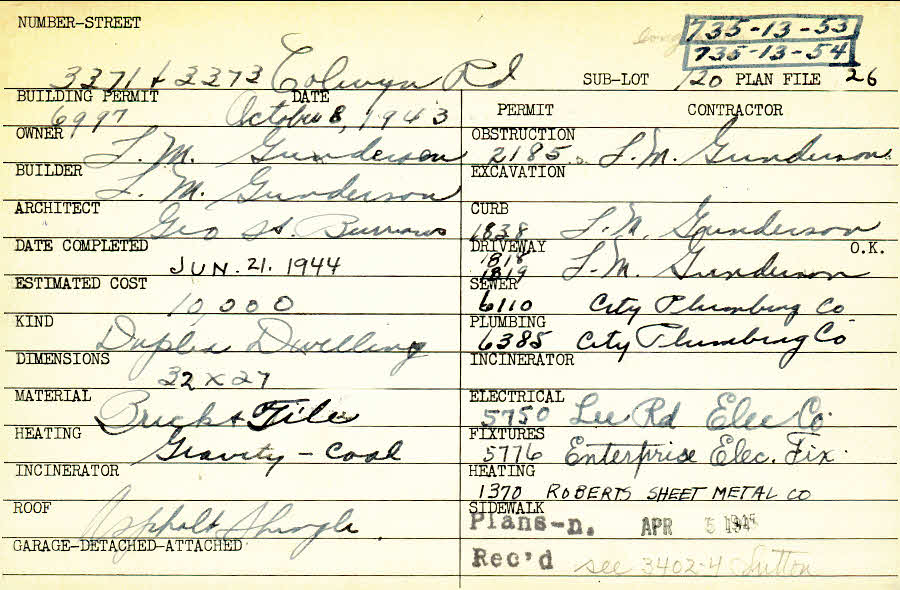 NUMBER-STREET
735-13-53
735-13-54
3371 & 3373 Colwyn Rd
SUB-LOT 120 PLAN FILE 26
BUILDING PERMIT DATE
6997 October 8, 1943
PERMIT CONTRACTOR
OWNER L. M. Gunderson
OBSTRUCTION
2185 L. M. Gunderson
BUILDER L. M. Gunderson
EXCAVATION
ARCHITECT Geo H. Burrows
CURB
1838 L. M. Gunderson
DATE COMPLETED
JUN. 21. 1944
DRIVEWAY O.K.
1818
1819 L. M. Gunderson
ESTIMATED COST
10000
SEWER
6110 City Plumbing Co
KIND
Duplex Dwelling
PLUMBING
6385 City Plumbing Co
DIMENSIONS
32 x 27
INCINERATOR
MATERIAL
Brick & Tile
ELECTRICAL
5750 Lee Rd Elec Co.
HEATING
Gravity - Coal
FIXTURES
5776 Enterprise Elec. Fix.
INCINERATOR
HEATING
1370 ROBERTS SHEET METAL CO
ROOF
Asphalt Shingle
SIDEWALK
Plans-n. APR 5
GARAGE-DETACHED-ATTACHED
Rec'd see 3402-4 Sutton